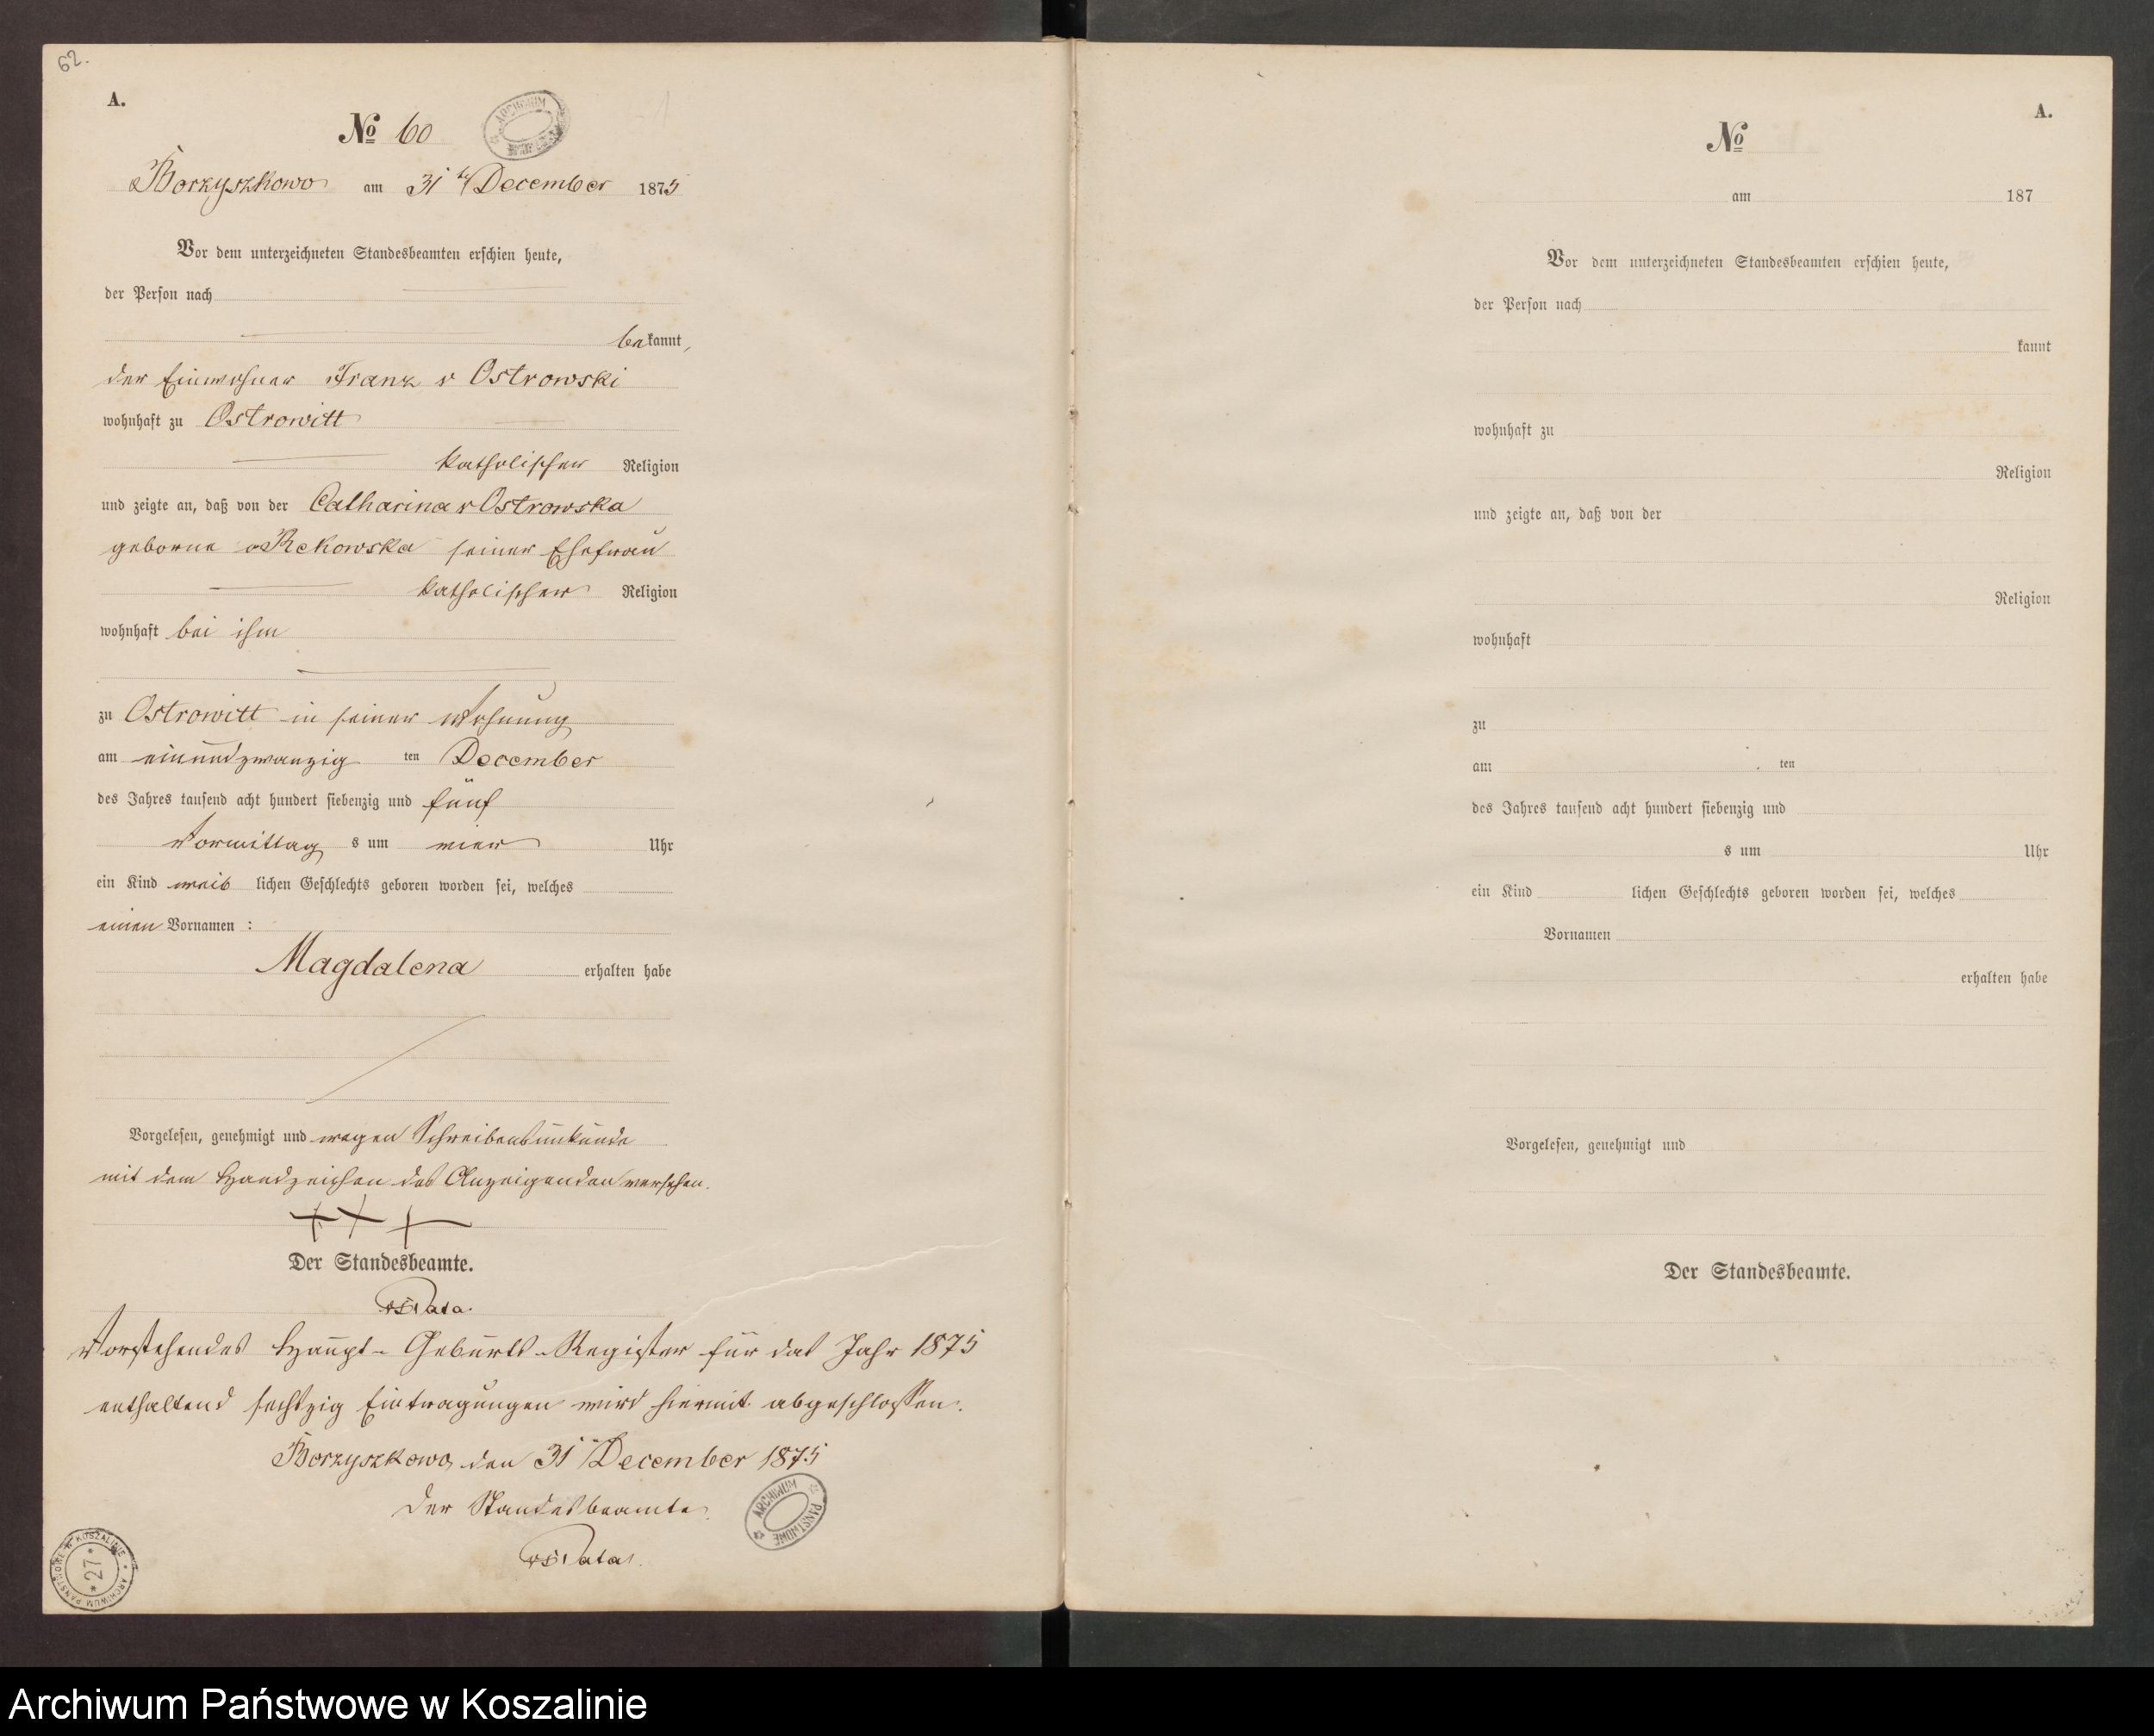 62.
A.
No 60
ARCHIWUM
Borzyszkowo am 31 ten December 1875
Vor dem unterzeichneten Standesbeamten erschien heute,
der Person nach
bekannt,
der Einwohner Franz v Ostrowski
wohnhaft zu Ostrowitt
katholischer Religion
und zeigte an, daß von der Catharina v Ostrowska
geborne v Rekowska seiner Ehefrau
katholischer Religion
wohnhaft bei ihm
zu Ostrowitt in seiner Wohnung
am einundzwanzig ten December
des Jahres tausend acht hundert siebenzig und fünf
Vormittag s um vier Uhr
ein Kind weib lichen Geschlechts geboren worden sei, welches
einen Vornamen :
Magdalena erhalten habe
Vorgelesen, genehmigt und wegen Schreibensunkunde
mit dem Handzeichen des Anzeigenden versehen.
+++
Der Standesbeamte.
Vorstehendes Haupt-Geburts-Register für das Jahr 1875
enthaltend sechszig Eintragungen wird hiermit abgeschlossen.
Borzyszkowo den 31 December 1875
Der Standesbeamte.
ARCHIWUM PAŃSTWOWE
ARCHIWUM PAŃSTWOWE W KOSZALINIE * 27 *
A.
No
am 187
Vor dem unterzeichneten Standesbeamten erschien heute,
der Person nach
kannt
wohnhaft zu
Religion
und zeigte an, daß von der
Religion
wohnhaft
zu
am ten
des Jahres tausend acht hundert siebenzig und
s um Uhr
ein Kind lichen Geschlechts geboren worden sei, welches
Vornamen
erhalten habe
Vorgelesen, genehmigt und
Der Standesbeamte.
Archiwum Państwowe w Koszalinie